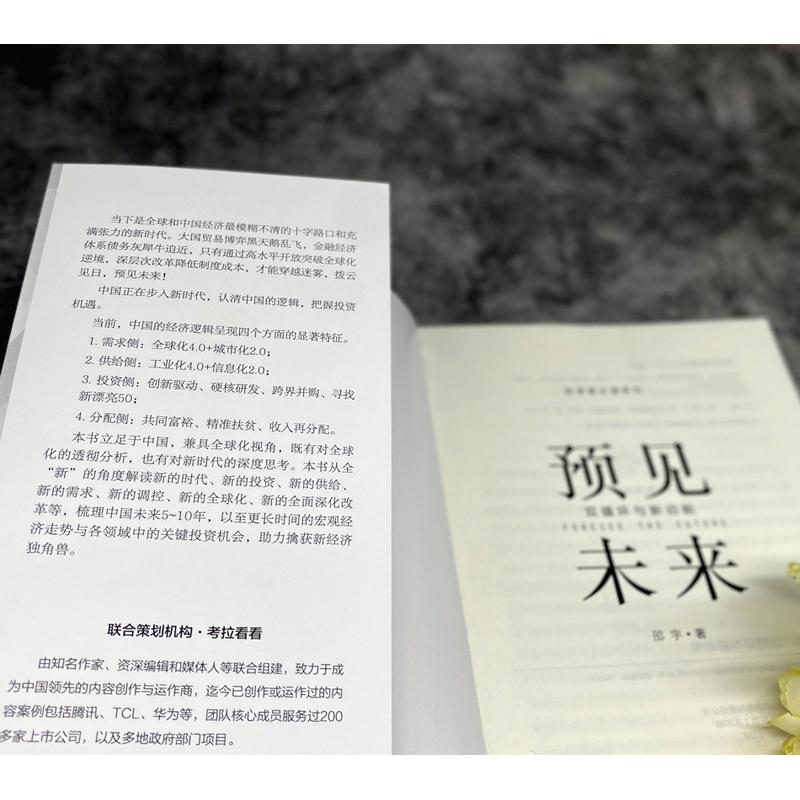 当下是全球和中国经济最模糊不清的十字路口和充
满张力的新时代。大国贸易博弈黑天鹅乱飞，金融经济
体系债务灰犀牛迫近，只有通过高水平开放突破全球化
逆境，深层次改革降低制度成本，才能穿越迷雾，拨云
见日，预见未来！
中国正在步入新时代，认清中国的逻辑，把握投资
机遇。
当前，中国的经济逻辑呈现四个方面的显著特征。
1. 需求侧：全球化4.0+城市化2.0；
2. 供给侧：工业化4.0+信息化2.0；
3. 投资侧：创新驱动、硬核研发、跨界并购、寻找
新漂亮50；
4. 分配侧：共同富裕、精准扶贫、收入再分配。
本书立足于中国，兼具全球化视角，既有对全球
化的透彻分析，也有对新时代的深度思考。本书从全
“新”的角度解读新的时代、新的投资、新的供给、
新的需求、新的调控、新的全球化、新的全面深化改
革等，梳理中国未来5~10年，以至更长时间的宏观经
济走势与各领域中的关键投资机会，助力擒获新经济
独角兽。
联合策划机构·考拉看看
由知名作家、资深编辑和媒体人等联合组建，致力于成
为中国领先的内容创作与运作商，迄今已创作或运作过的内
容案例包括腾讯、TCL、华为等，团队核心成员服务过200
多家上市公司，以及多地政府部门项目。
预见
双循环与新动能
FORESEE THE FUTURE
未来
邵宇·著